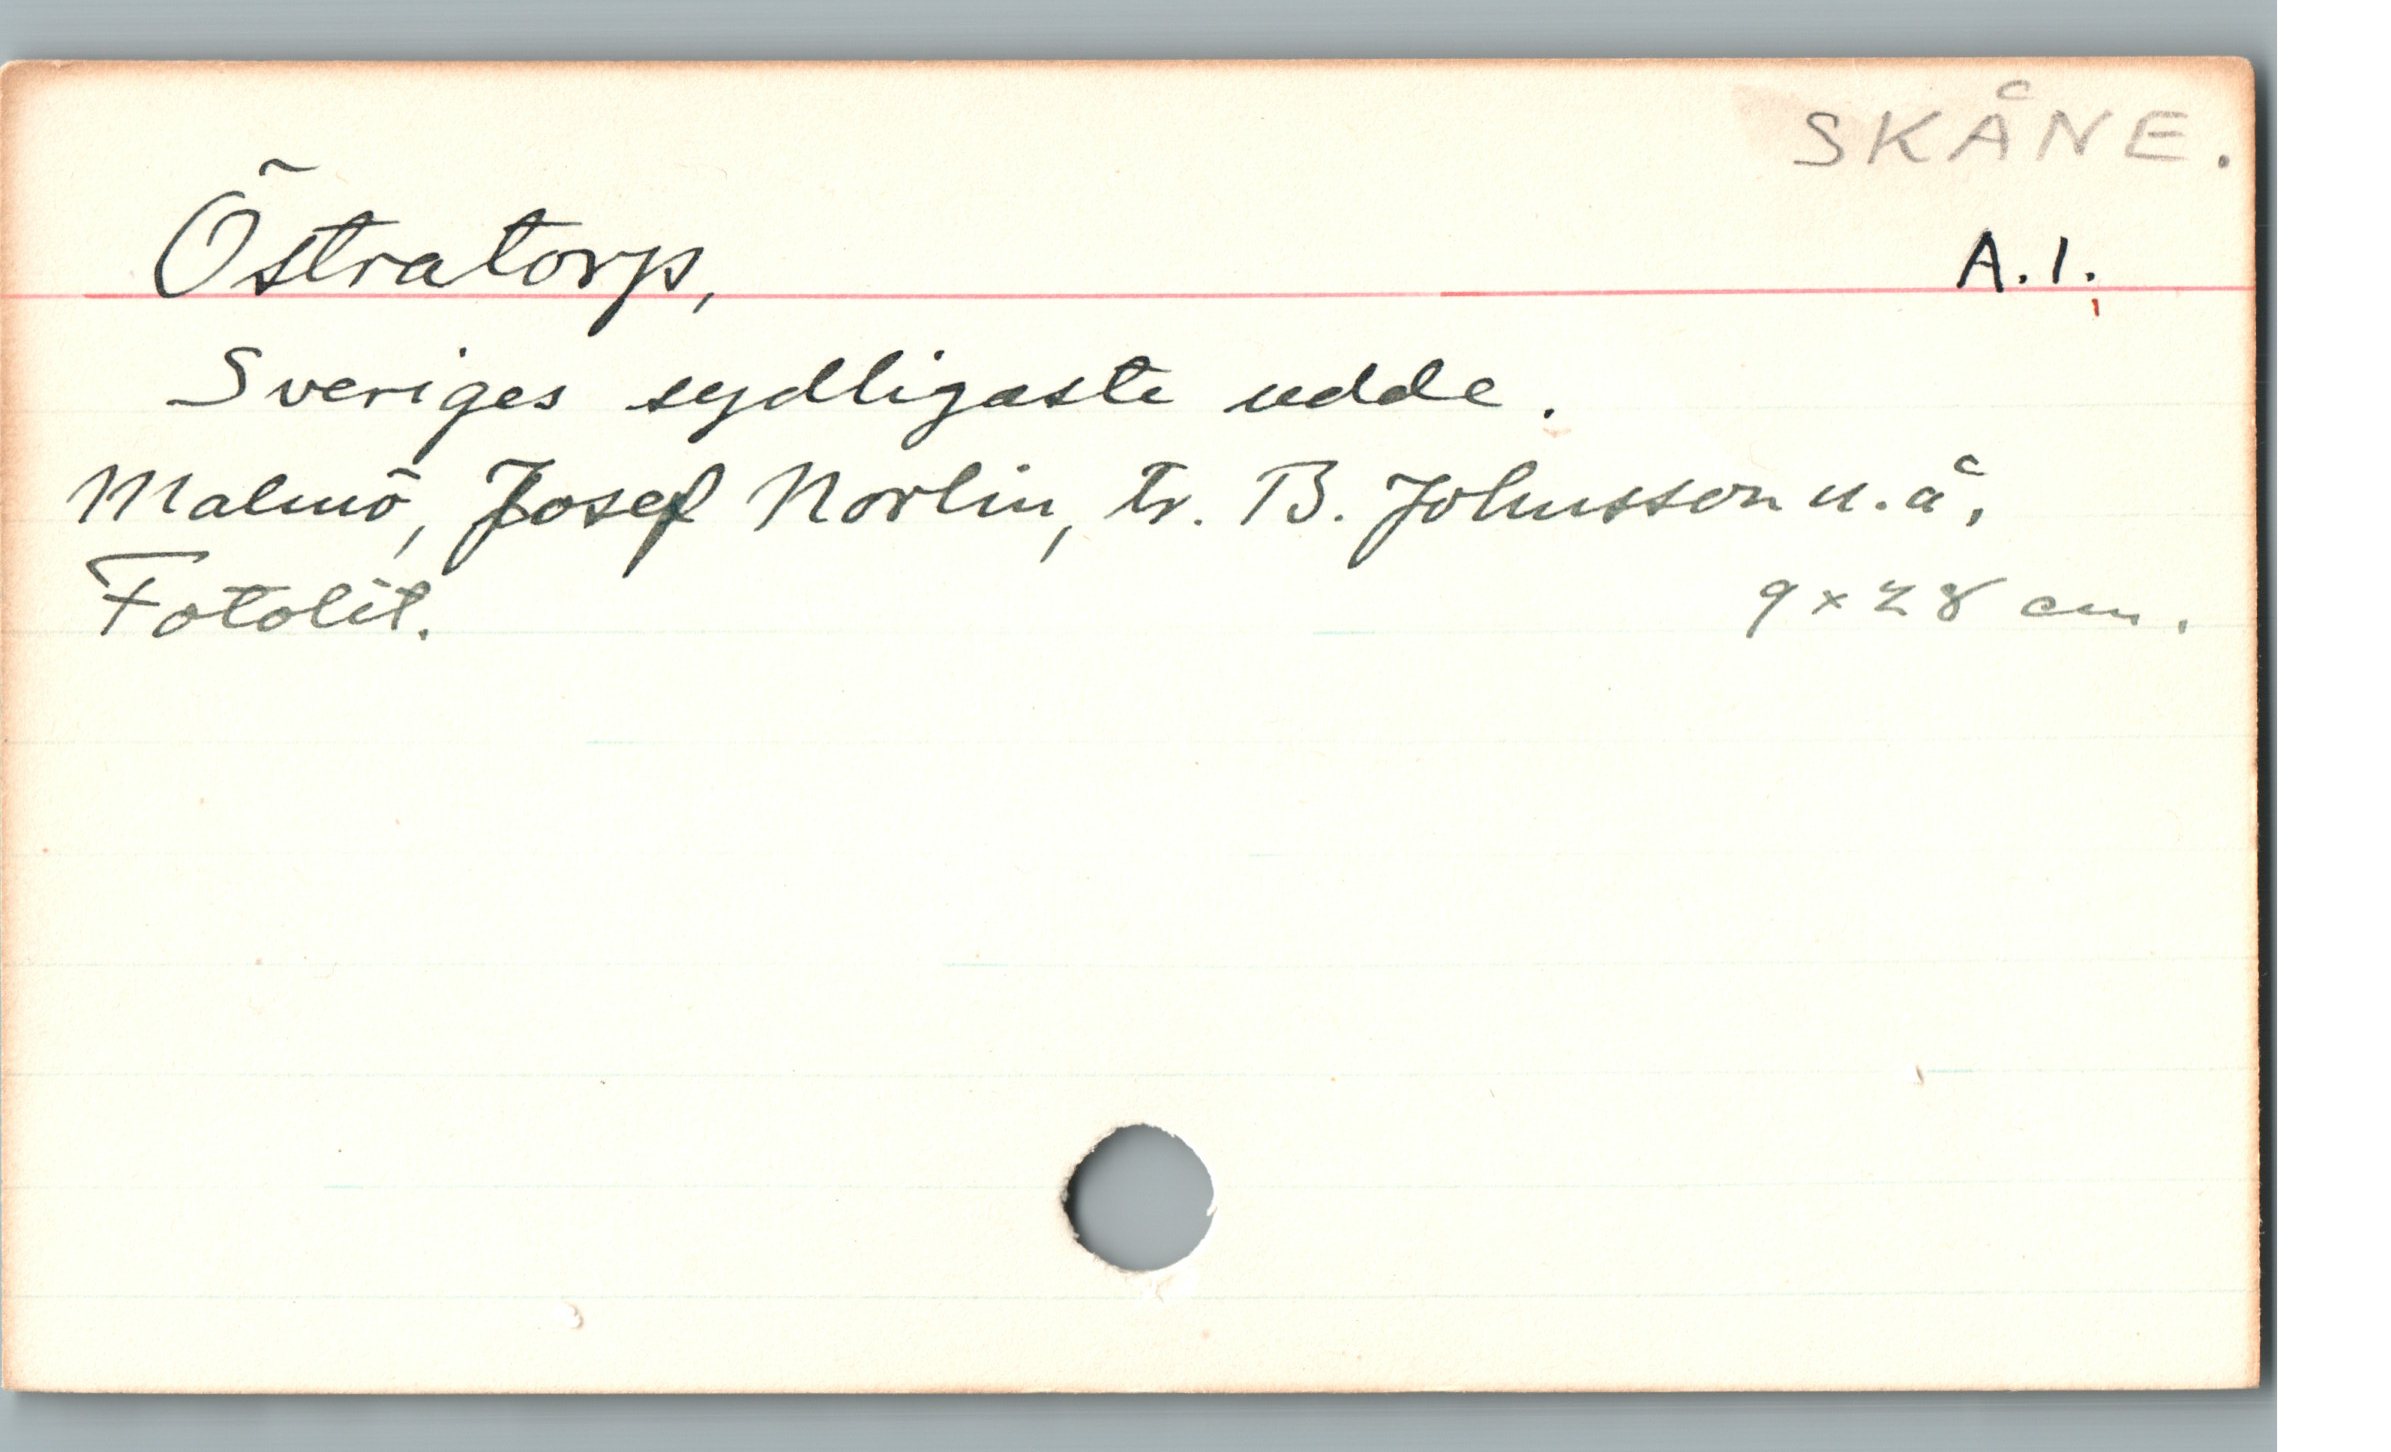 SKÅNE.
Östratorp, A.1.
Sveriges sydligaste udde.
Malmö, Josef Norlin, tr. B. Johnsson u.å.
Fotolit. 9x28 cm.